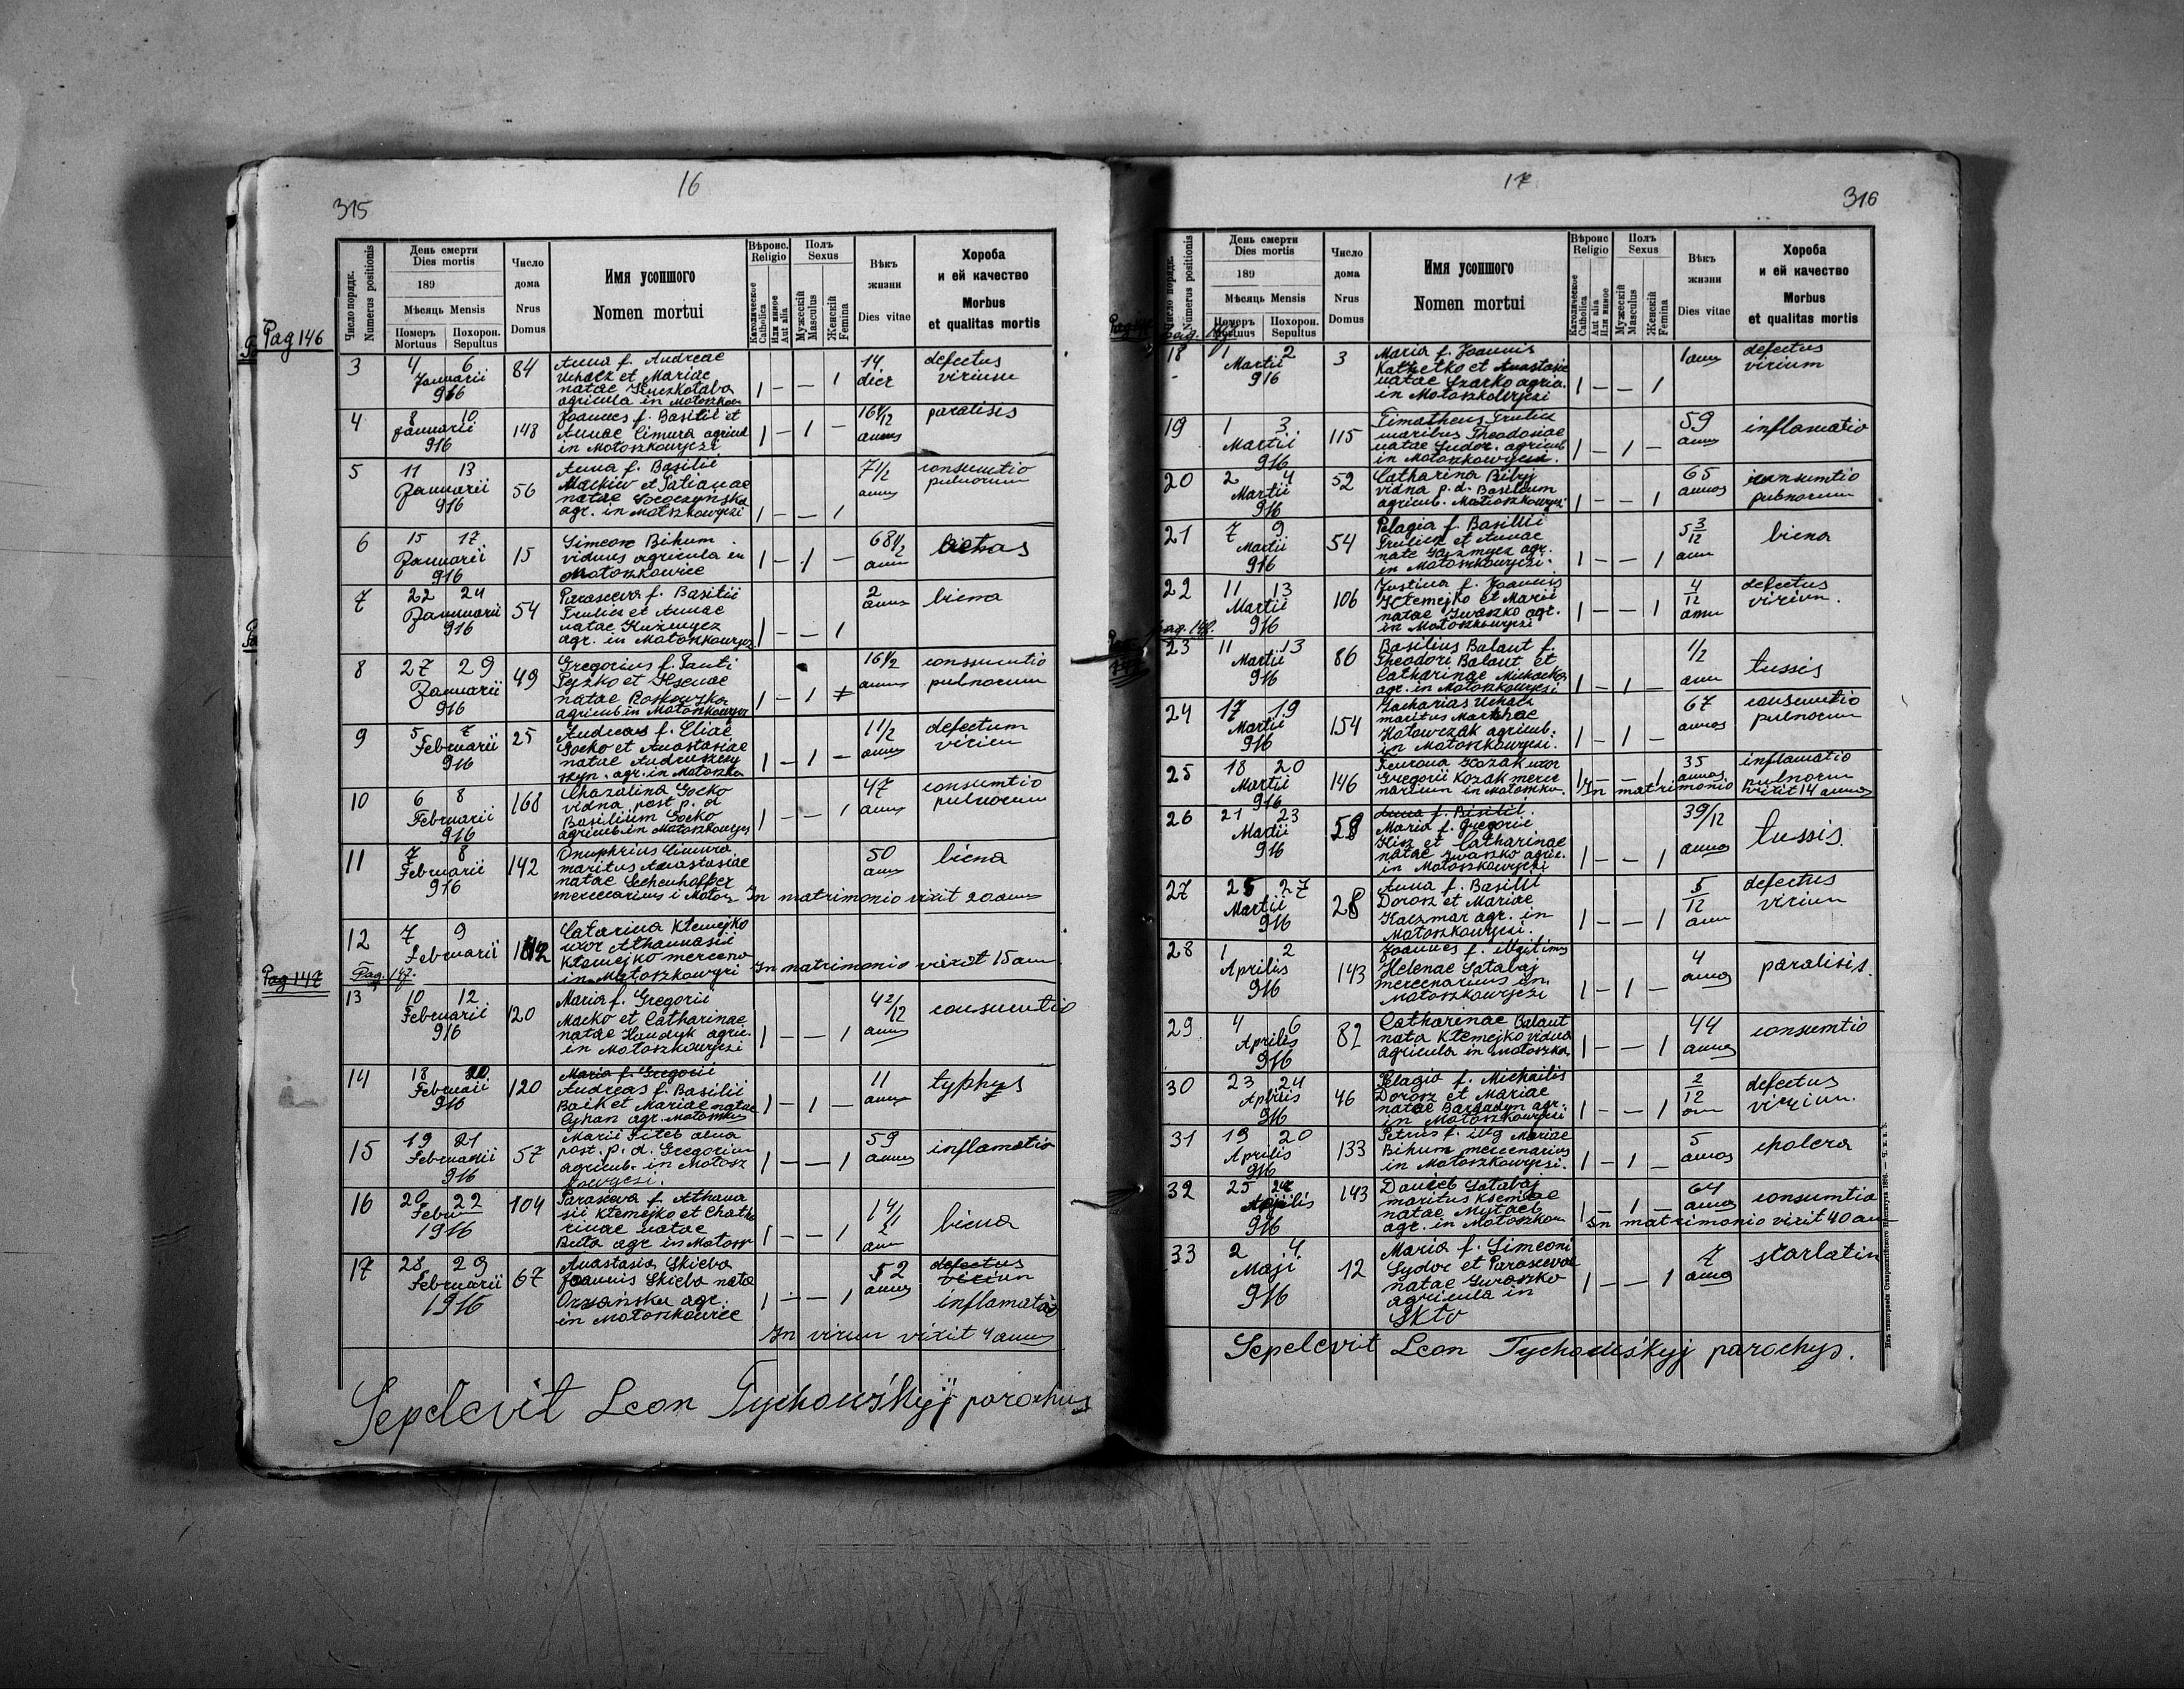 16
315
Число порядк.
Numerus positionis
День смерти
Dies mortis
189
Мѣсяць Mensis
Померъ Похорон.
Mortuus Sepultus
Число
дома
Nrus
Domus
Имя усопшого
Nomen mortui
Вѣроис.
Religio
Католическое
Catholica
Или иное
Aut alia
Полъ
Sexus
Мужескій
Masculus
Женскій
Femina
Вѣкъ
жизни
Dies vitae
Хороба
и ей качество
Morbus
et qualitas mortis
Pag 146
3 4 6 Januarii 916 84
Anna f. Andreae
et Mariae
natae
agricola in Motoszkow
1 – – 1 14 dier defectus virium
4 8 10 Januarii 916 148
Joannes f. Basilii et
Annae Cimura agricol
in Motoszkowyczi
1 – 1 – annus paralisis
5 11 13 Januarii 916 56
Anna f. Basilii
Mackiw et Tatianae
natae
agr. in Motszkowyczi
1 – – 1 71/2 annus consumtio pulnorum
6 15 17 Januarii 916 15
Simeon Bihum
viduus agricula in
Motoszkowice
1 – 1 – 68 1/2 ann
7 22 24 Januarii 916 54
Parasceva f. Basilii
Trulicz et Annae
natae Kuzmycz
agr. in Motoszkowycz
1 – – 1 2 annus biena
8 27 29 Januarii 916 49
Gregorius f. Panti
Pyzko et Xseniae
natae
agricul in Motoszkowycz
1 – 1 16 1/2 annus conssumtio pulnorum
9 5 7 Februarii 916 25
Andreas f. Eliae
Gocko et Anastasiae
natae Andruszczy
szyn. agr. in Motoszko
1 – 1 – 1 1/2 annus defectum virium
10 6 8 Februarii 916 168
Gocko
vidna post p. d
Basilium Gocko
agricul in Motoszkowycz
1 – – 1 47 annus consumtio pulnorum
11 7 8 Februarii 916 142
Onuphrius Cimura
maritus Anastasiae
natae
mercenarius i Motosz
50 ann biena
In matrimonio vixit 20 annus
12 7 9 Februarii
Catarina Ktemejko
uxor Athanasii
Ktemejko merceno
in Motoszkowyczi
In matrimonio vixit 15 ann
Pag 147
Pag. 147.
13 10 12 Februarii 916 120
Maria f. Gregorii
Macko et Catharinae
natae Handyk agric.
in Motoszkowyczi
1 – – 1 4 2/12 annus consumtio
14 18 20 Februarii 916 120
Maria f. Gregorii
Andreas f. Basilii
Baik et Mariae natae
Cyhan agr. Motoszkow
1 – 1 – 11 annus typhys
15 19 21 Februarii 916 57
Marii
post. p. d. Gregorium
agricul. in Motosz
kowyczi.
1 – – 1 59 annus inflamatio
16 20 22 Febru 1916 104
Parasceva f. Athana
sii Ktemejko et Chatha
rinae natae
Buta agr. in Motosz
1 – – 1 ann biena
17 28 29 Februarii 1916 67
Anastasia Skieba
Joannis Skieba nata
Orzańska agr.
in Motoszkowice
1 – – 1 52 annus defectus virium inflamatio
In virum vixit 4 annus
Sepelevit Leon Tychowśkyj parochus
17
316
Число порядк.
Numerus positionis
День смерти
Dies mortis
189
Мѣсяць Mensis
Померъ Похорон.
Mortuus Sepultus
Число
дома
Nrus
Domus
Имя усопшого
Nomen mortui
Вѣроис
Religio
Католическое
Catholica
Aut alia
Или иное
Полъ
Sexus
Мужескій
Masculus
Женскій
Femina
Вѣкъ
жизни
Dies vitae
Хороба
и ей качество
Morbus
et qualitas mortis
18 1 2 Martii 916 3
Maria f. Joannis
et Anastasie
natae Szarko agric.
in Motoszkowyczi
1 – – 1 1 ann defectus virium
19 1 3 Martii 916 115
Timotheus Trulicz
maritus Theodosiae
natae Sudor. agricul
in Motoszkowyczi.
1 – 1 – 59 annus inflamatio
20 2 4 Martii 916 52
Catharina Bibyj
vidna p. d. Basilium
agricul. Motoszkowyczi
1 – – 1 65 annos consumtio pulnorum
21 7 9 Martii 916 54
Pelagia f. Basilii
Trulicz et Annae
nate Kuzmycz agr.
in Motoszkowyczi.
1 – – 1 5 3/12 ann biena
22 11 13 Martii 916 106
Justina f. Joannis
Ktemejko et Marii
natae Iwaszko agr.
in Motoszkowyczi
1 – – 1 4/12 ann defectus virium.
Pag. 148.
23 11 13 Martii 916 86
Basilius Balaut f.
Theodori Balaut et
Catharinae
agr. in Motoszkowyczi
1 – 1 – 1/2 ann tussis
24 17 19 Martii 916 154
Zacharias
maritus Marthae
Hotowczak agricul.
in Motoszkowyczi.
1 – 1 – 67 annos consumtio pulnorum
25 18 20 Martii 916 146
Kozak uxor
Gregorii Kozak merce
narium in Motoszkow.
1 – – 1 35 annos inflamatio pulnorum
In matrimonio vixit 14 annos
26 21 23 Martii 916 58
Anna f. Basilii.
Maria f. Gregorii
Kisz et Catharinae
natae Iwaszko agric.
in Motoszkowyczi
1 – – 1 3 9/12 annos tussis.
27 25 27 Martii 916 28
Anna f. Basilii
Dorosz et Mariae
Kaczmar agr. in
Motoszkowyczi.
1 – – 1 5/12 ann defectus virium
28 1 2 Aprilis 916 143
Joannes f. illegitimus
Helenae Satabaj
mercenarius in
Motoszkowyczi
1 – 1 – 4 annos paralisis.
29 4 6 Aprilis 916 82
Catharinae Balaut
nata Ktemejko vidua
agricula in Motoszko
1 – – 1 44 annos consumtio
30 23 24 Aprilis 916 46
Pelagia f. Michailis
Dorosz et Mariae
natae Bardadyn agr.
in Motoszkowyczi
1 – – 1 2/12 ann defectus virium.
31 19 20 Aprilis 916 133
Petrus f. illg Mariae
Bihum mercenarius
in Motoszkowyczi.
1 – 1 – 5 annos cholera
32 25 Aprilis 916 143
Satabaj
maritus Kseniae
natae
agr. in Motoszkow
1 – 1 – 64 annos consumtio
In matrimonio vixit 40 ann
33 2 4 Maji 916 12
Maria f. Simeoni
Sydor et Parascevae
natae Iwaszko
agricula in
Skto
1 – – 1 7 annos starlatin
Sepelevit Leon Tychowśkyj parochys.
Изъ типографіи Ставропигійского Института 1896.